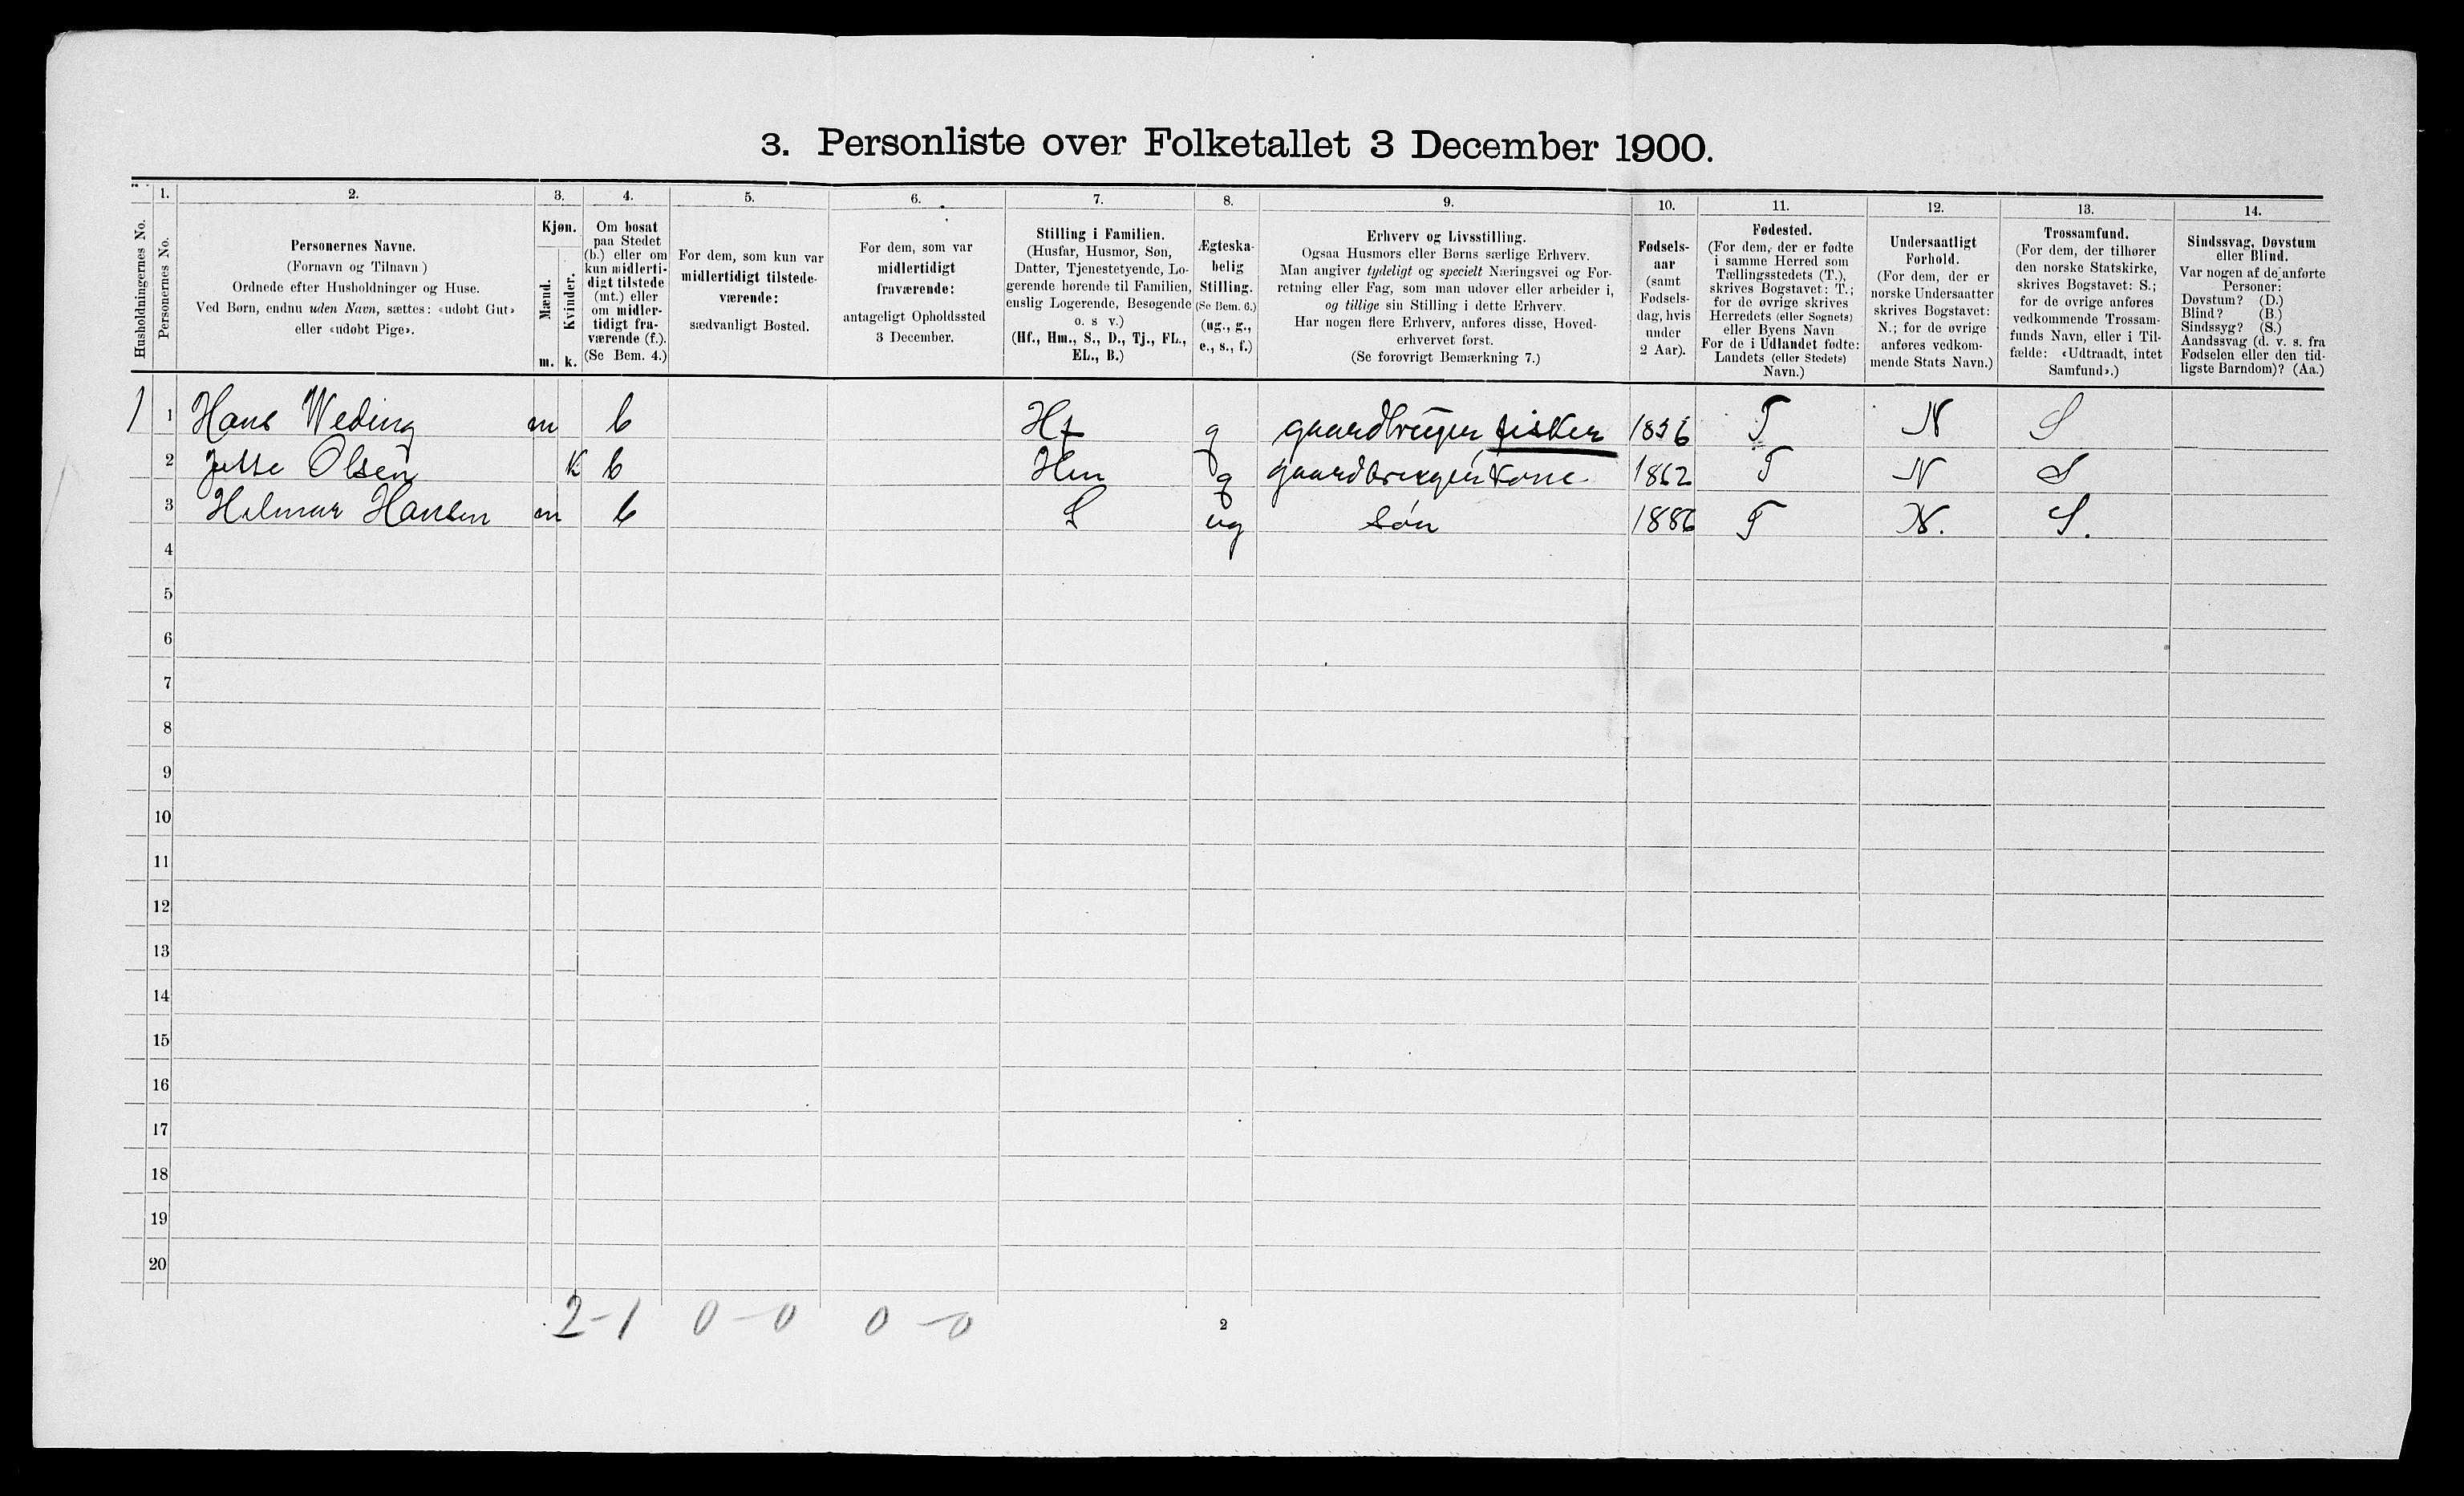 3. Personliste over Folketallet 3 December 1900.
1. 2. 3. 4. 5. 6. 7. 8. 9. 10. 11. 12. 13. 14.
Husholdningernes No.
Personernes No.
Personernes Navne.
(Fornavn og Tilnavn)
Ordnede efter Husholdninger og Huse.
Ved Børn, endnu uden Navn, sættes: «udøbt Gut»
eller «udøbt Pige».
Kjøn.
Mænd.
Kvinder.
m. k.
Om bosat
paa Stedet
(b.) eller om
kun midlerti-
digt tilstede
(mt.) eller
om midler-
tidigt fra-
værende (f.).
(Se Bem. 4.)
For dem, som kun var
midlertidigt tilstede-
værende:
sædvanligt Bosted.
For dem, som var
midlertidigt
fraværende:
antageligt Opholdssted
3 December.
Stilling i Familien.
(Husfar, Husmor, Søn,
Datter, Tjenestetyende, Lo-
gerende hørende til Familien,
enslig Logerende, Besøgende
o. s v.)
(Hf., Hm., S., D., Tj., FL.,
EL., B.)
Ægteska-
belig
Stilling.
(Se Bem. 6.)
(ug., g.,
e., s., f.)
Erhverv og Livsstilling.
Ogsaa Husmors eller Børns særlige Erhverv.
Man angiver tydeligt og specielt Næringsvei og For-
retning eller Fag, som man udøver eller arbeider i,
og tillige sin Stilling i dette Erhverv.
Har nogen flere Erhverv, anføres disse, Hoved-
erhvervet først.
(Se forøvrigt Bemærkning 7.)
Fødsels-
aar
(samt
Fødsels-
dag, hvis
under
2 Aar).
Fødested.
(For dem, der er fødte
i samme Herred som
Tællingsstedets (T.),
skrives Bogstavet: T.;
for de øvrige skrives
Herredets (eller Sognets)
eller Byens Navn
For de i Udlandet fødte:
Landets (eller Stedets)
Navn.)
Undersaatligt
Forhold.
(For dem, der er
norske Undersaatter
skrives Bogstavet:
N.; for de øvrige
anføres vedkom-
mende Stats Navn.)
Trossamfund.
(For dem, der tilhører
den norske Statskirke,
skrives Bogstavet: S.;
for de øvrige anføres
vedkommende Trossam-
funds Navn, eller i Til-
fælde: «Udtraadt, intet
Samfund».)
Sindssvag, Døvstum
eller Blind.
Var nogen af de anførte
Personer:
Døvstum? (D.)
Blind? (B.)
Sindssyg? (S.)
Aandssvag (d. v. s. fra
Fødselen eller den tid-
ligste Barndom)? (Aa.)
1 1 Hans Weding m b Hf g gaardbruger, fisker 1836 T N S
2 Olsen K b Hm g gaardbruger kone 1862 T N S
3 Hilmar Hansen m b S ug søn 1886 T N. S.
4
5
6
7
8
9
10
11
12
13
14
15
16
17
18
19
20
2-1 0-0 0-0
2